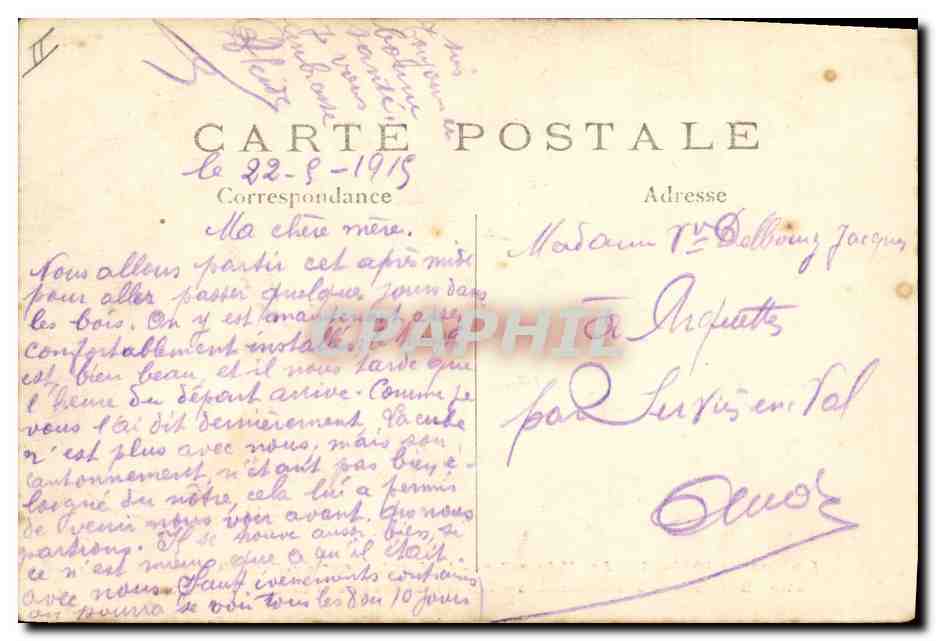 II
sois
toujours en
bonne
santé.
Je vous
embrasse
CARTE POSTALE
le 22-5-1915
Correspondance
Adresse
Ma chère mère.
Nous allons partir cet après midi
pour aller passer quelques jours dans
les bois. On y est maintenant assez
confortablement installé
est bien beau et il nous tarde que
l'heure du départ arrive. Comme je
vous l'ai dit dernièrement
n'est plus avec nous, mais son
cantonnement n'étant pas bien é-
loigné du nôtre, cela lui a permis
de venir nous voir avant que nous
partions. Il se trouve aussi bien, si
ce n'est mieux, que quand il était
avec nous. Sauf évènements contraires
on pourra se voir tous les 8 ou 10 jours
Madame Vve Delbourg Jacques
à Arquettes
par Serviès en Val
Aude
CPAPHIL